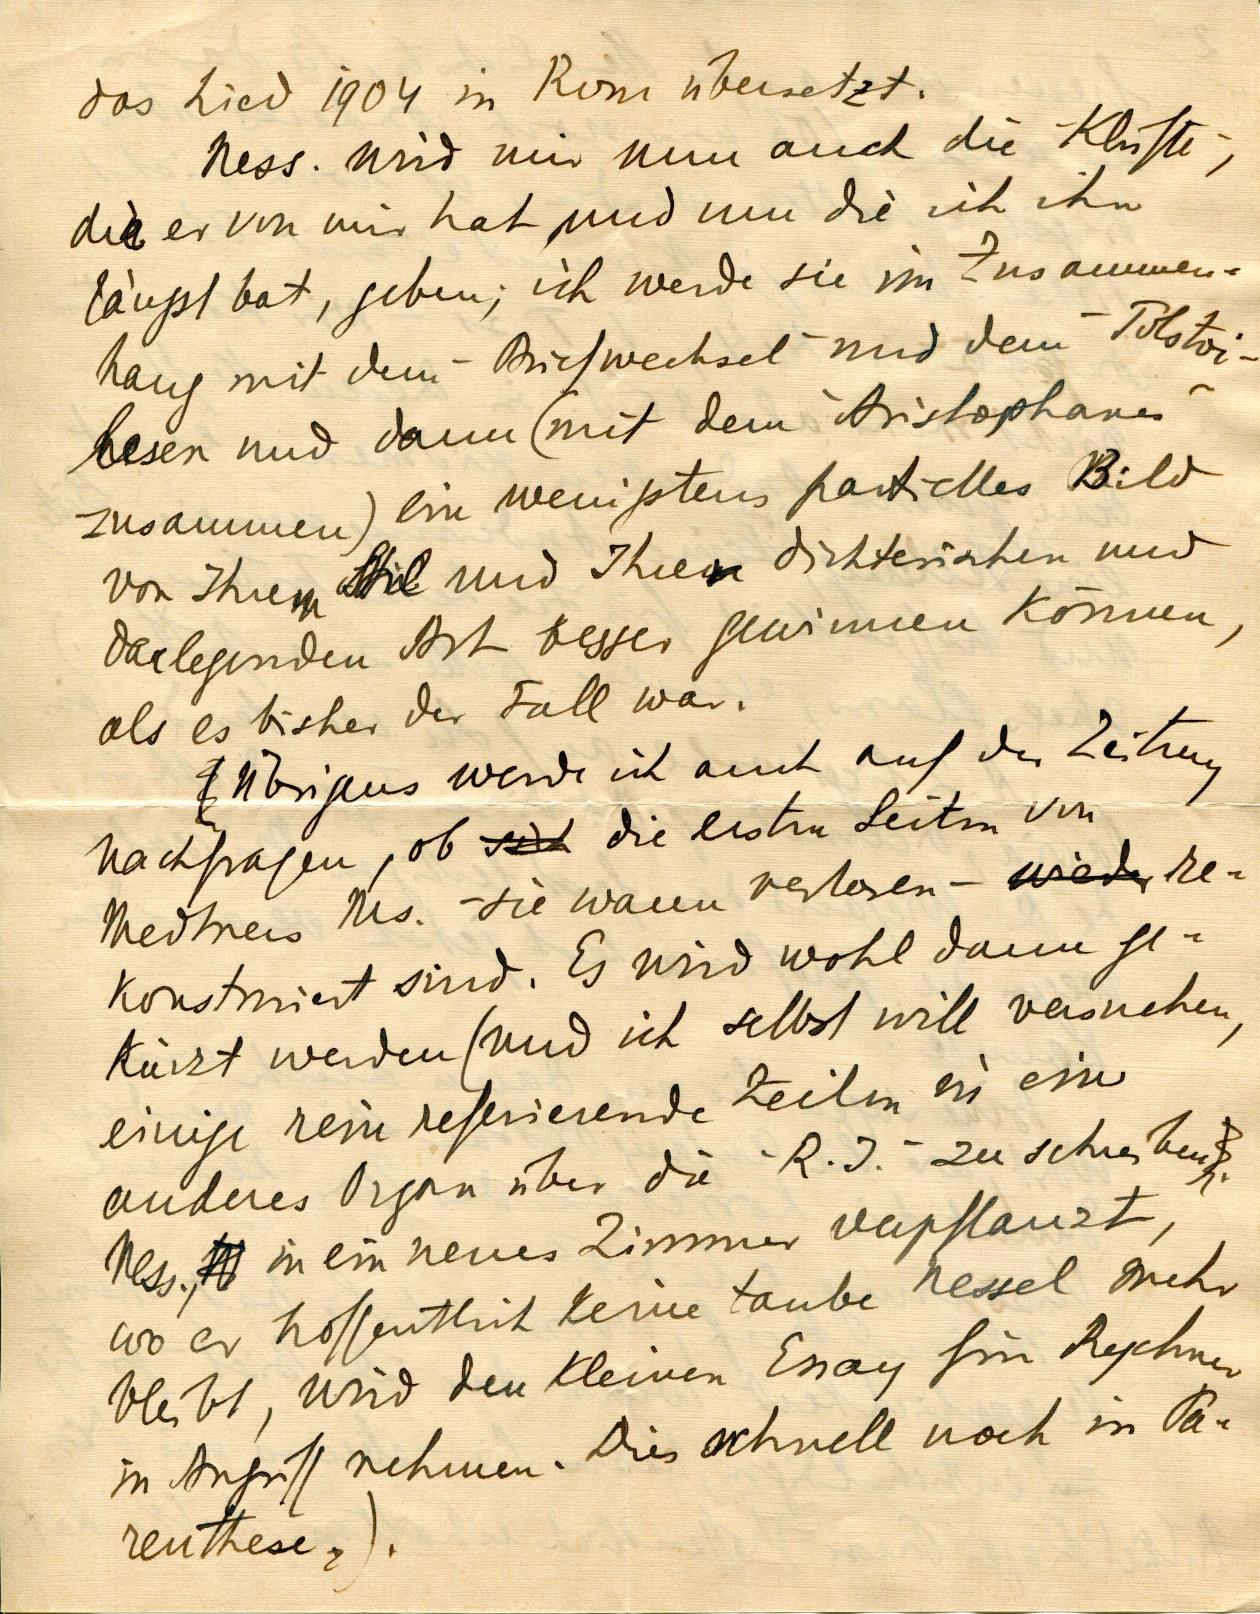 das Lied 1904 in Rom übersetzt.
Ness. wird mir nun auch die "Klüfte",
die er von mir hat, und um die ich ihn
längst bat, geben; ich werde sie im Zusammen-
hang mit dem "Briefwechsel" und dem "Tolstoi"-
lesen und dann (mit dem "Aristophanes"
zusammen) ein wenigstens partielles Bild
von Ihrem Stil und Ihrer dichterischen und
darlegenden Art besser gewinnen können,
als es bisher der Fall war.
(Übrigens werde ich auch auf der Zeitung
nachfragen, ob sich die ersten Seiten von
Medtners Ms. - sie waren verloren - wieder re-
konstruiert sind. Es wird wohl dann ge-
kürzt werden (und ich selbst will versuchen,
einige rein referierende Zeilen in ein
anderes Organ über die "R.I." zu schreiben).
Ness., in ein neues Zimmer verpflanzt,
wo er hoffentlich keine taube Nessel mehr
bleibt, wird den kleinen Essay für Rychner
in Angriff nehmen. Dies schnell noch in Pa-
renthese.).